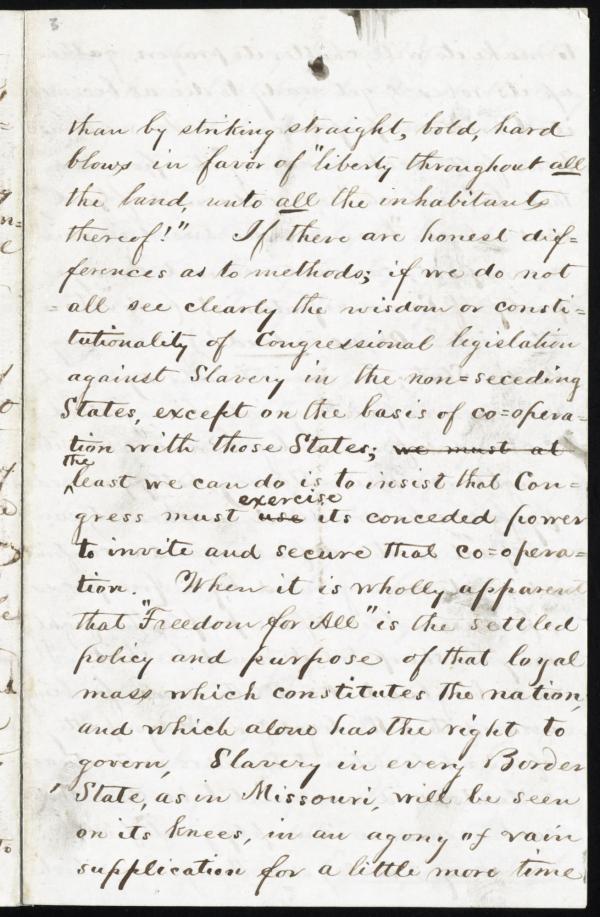 3
than by striking straight, bold, hard
blows in favor of "liberty throughout all
the land, unto all the inhabitants
thereof!" If there are honest dif=
ferences as to methods; if we do not
= all see clearly the wisdom or consti=
tutionality of Congressional legislation
against Slavery in the non=seceding
States, except on the basis of co=opera=
tion with those States; we must at
the
least we can do is to insist that Con=
exercise
gress must use its conceded power
to invite and secure that co=opera=
tion. When it is wholly apparent
that "Freedom for All" is the settled
policy and purpose of that loyal
mass which constitutes the nation,
and which alone has the right to
govern, Slavery in every Border
State, as in Missouri, will be seen
on its knees, in an agony of vain
supplication for a little more time